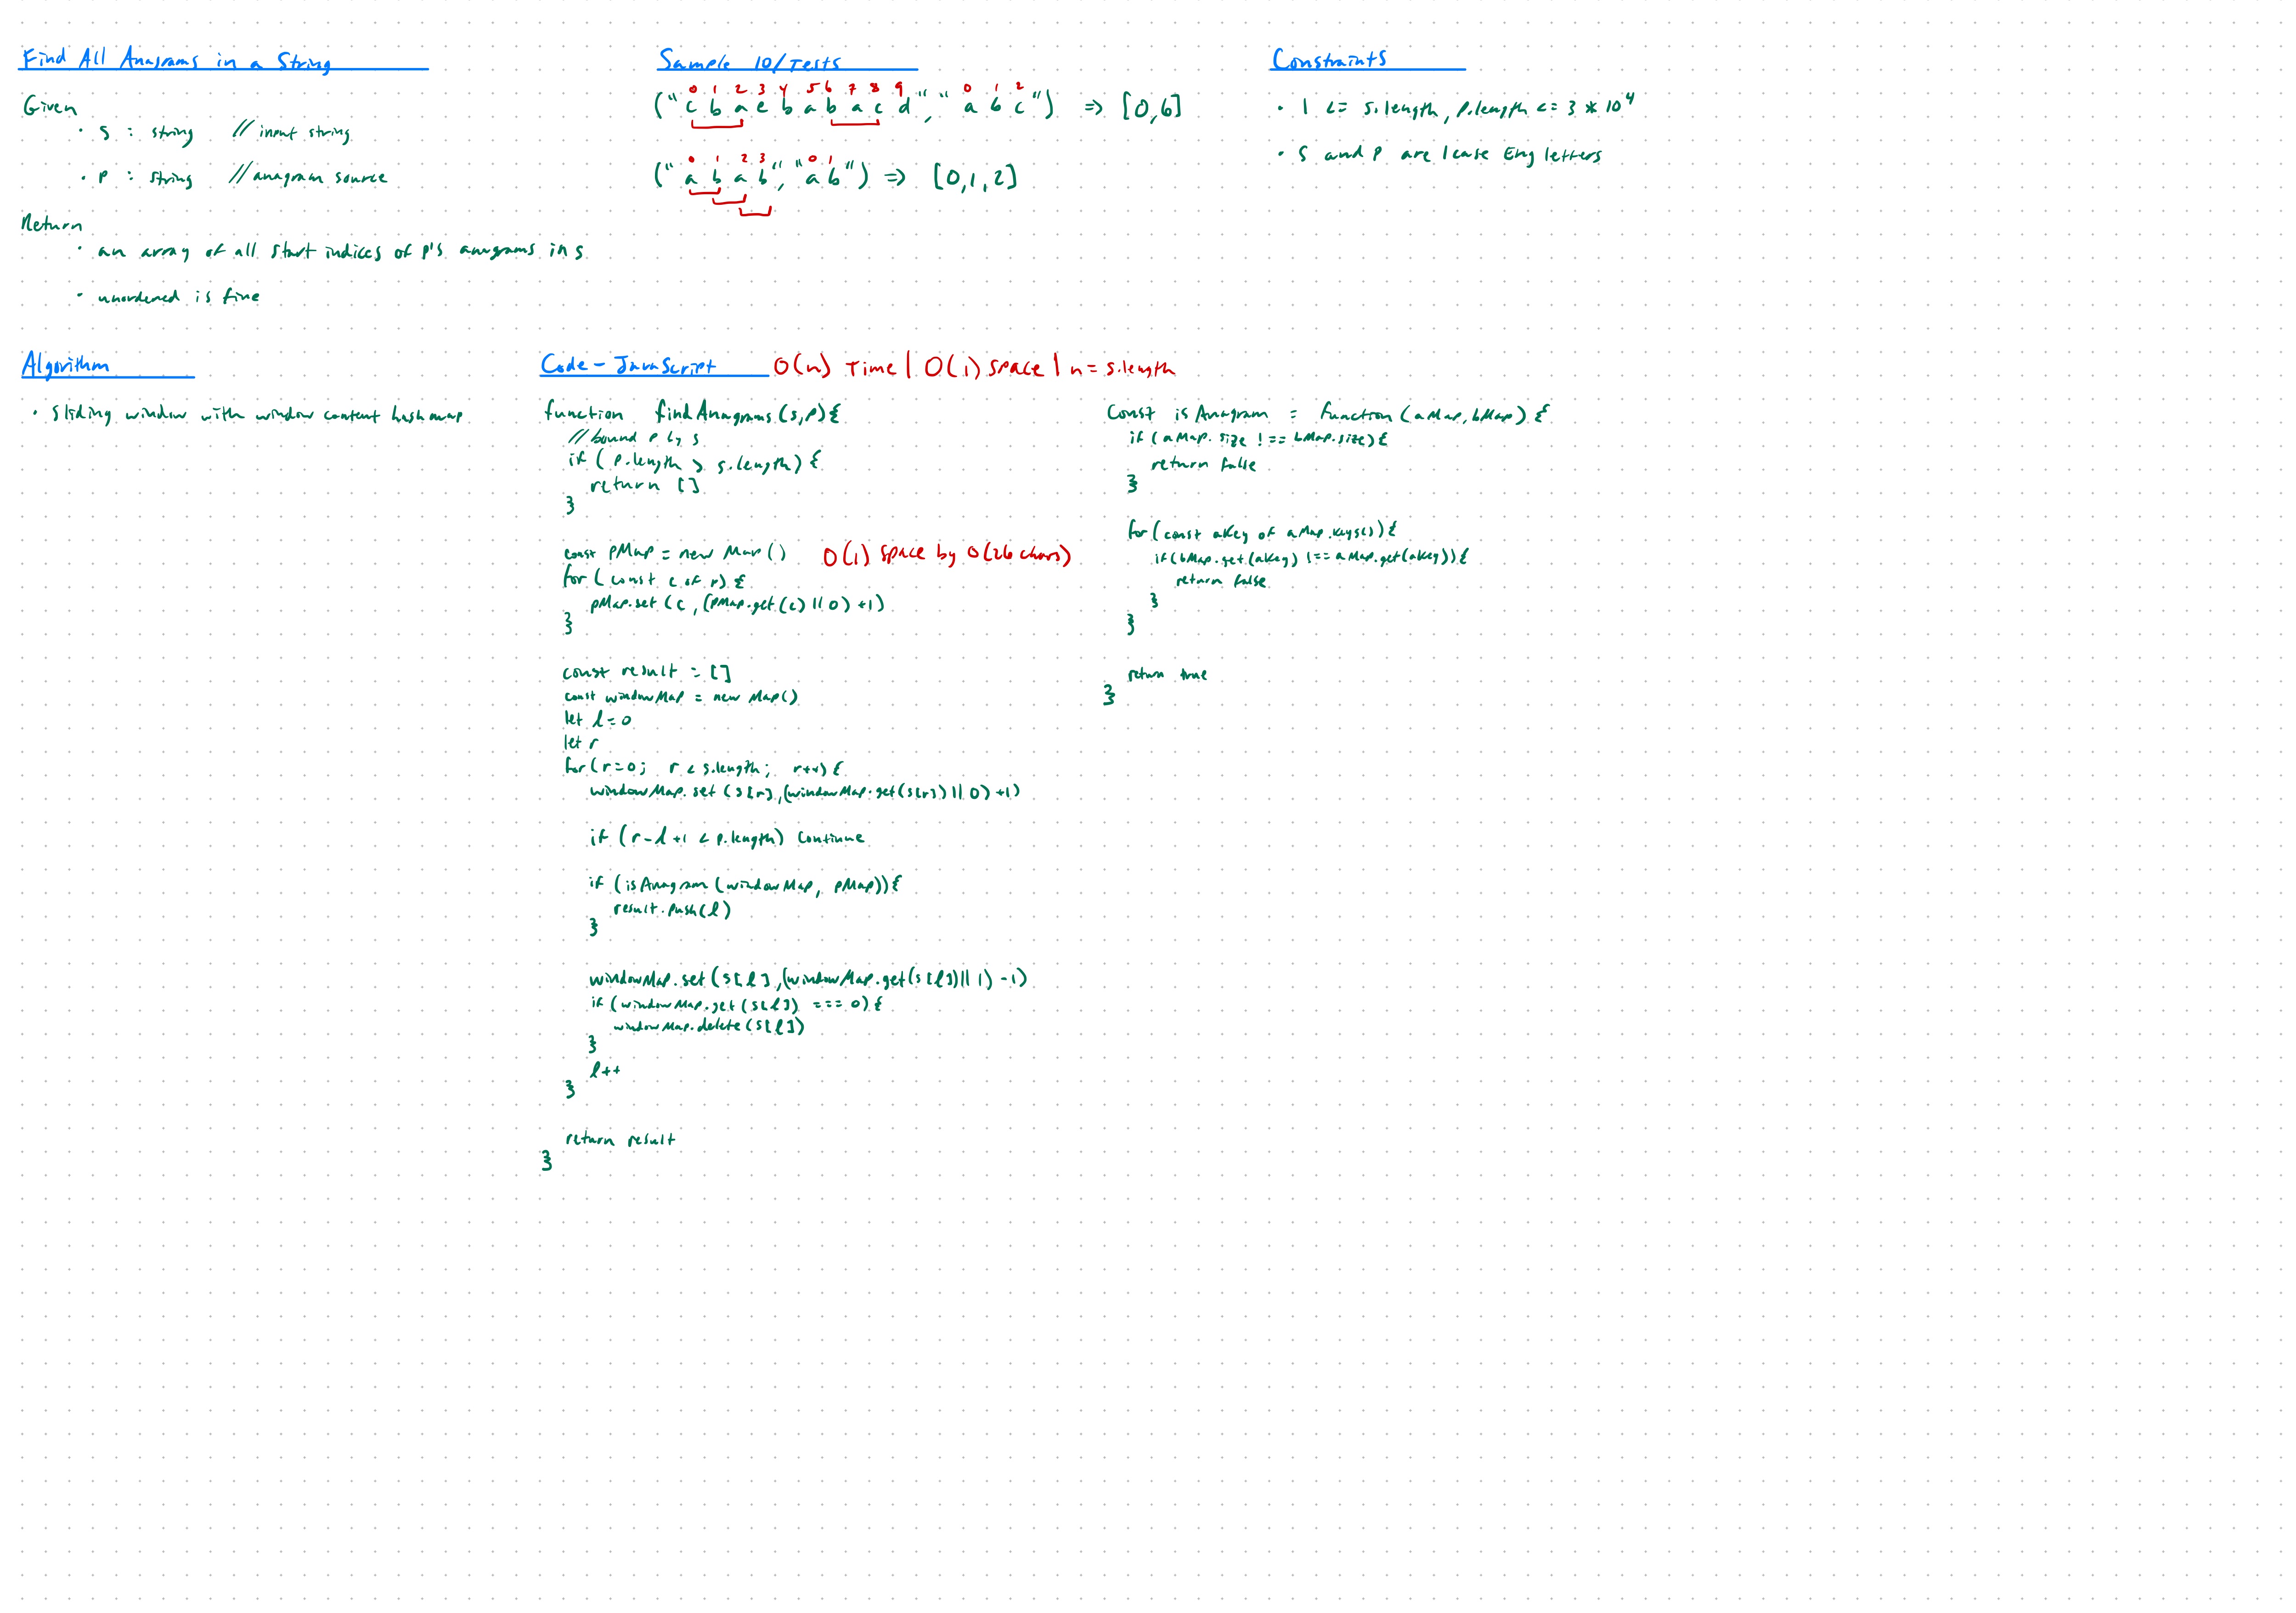 Find All Anagrams in a String
Given
· s : string // input string
· p : string // anagram source
Return
· an array of all start indices of p's anagrams in s
· unordered is fine
Sample IO/Tests
0 1 2 3 4 5 6 7 8 9 0 1 2
("c b a e b a b a c d", "a b c") => [0,6]
0 1 2 3 0 1
("a b a b", "a b") => [0,1,2]
Constraints
· 1 <= s.length, p.length <= 3 * 10^4
· s and p are lcase Eng letters
Algorithm
· sliding window with window content hashmap
Code - JavaScript O(n) Time | O(1) space | n = s.length
function findAnagrams(s,p){
// bound p by s
if (p.length > s.length) {
return []
}
const pMap = new Map() O(1) space by O(26 chars)
for (const c of p) {
pMap.set(c, (pMap.get(c) || 0) +1)
}
const result = []
const windowMap = new Map()
let l=0
let r
for(r=0; r < s.length; r++) {
windowMap.set(s[r], (windowMap.get(s[r]) || 0) +1)
if (r-l+1 < p.length) continue
if (isAnagram(windowMap, pMap)){
result.push(l)
}
windowMap.set(s[l], (windowMap.get(s[l]) || 1) -1)
if (windowMap.get(s[l]) === 0) {
windowMap.delete(s[l])
}
l++
}
return result
}
const isAnagram = function(aMap, bMap) {
if (aMap.size !== bMap.size){
return false
}
for (const aKey of aMap.keys()) {
if(bMap.get(aKey) !== aMap.get(aKey)){
return false
}
}
return true
}